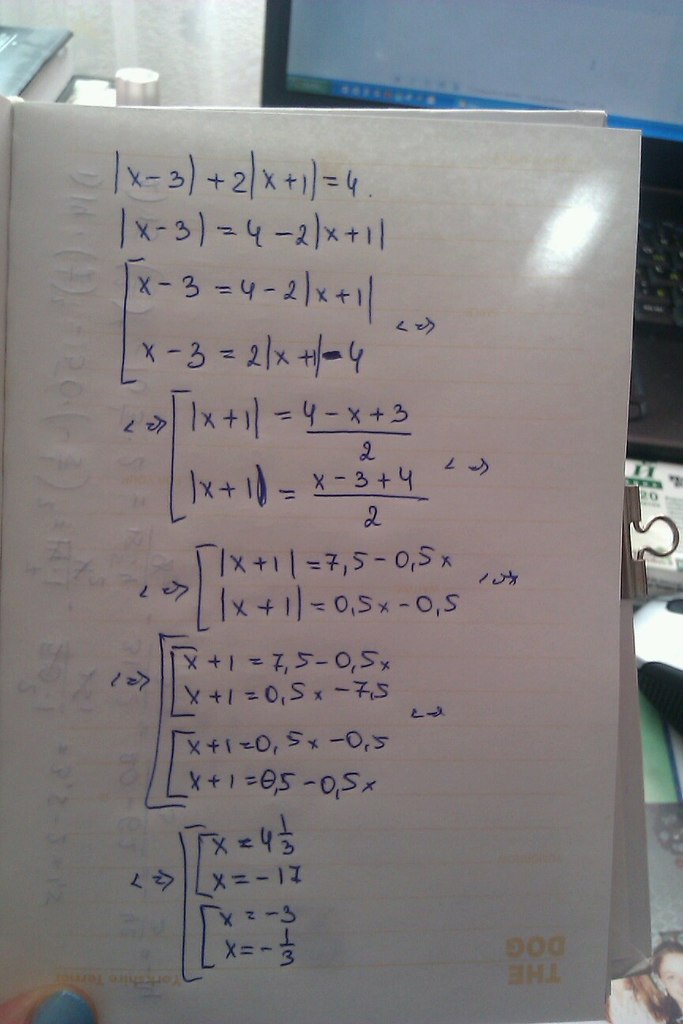 |x-3|+2|x+1|=4.
|x-3|=4-2|x+1|
[x-3=4-2|x+1|
x-3=2|x+1|-4 <=>
<=> [|x+1| = (4-x+3)/2
|x+1| = (x-3+4)/2 <=>
<=> [|x+1|=7,5-0,5x
|x+1|=0,5x-0,5 <=>
<=> [[x+1=7,5-0,5x
x+1=0,5x-7,5 <=>
[x+1=0,5x-0,5
x+1=0,5-0,5x
<=> [[x=4 1/3
x=-17
[x=-3
x=-1/3
THE DOG
Yorkshire Terrier
11
20